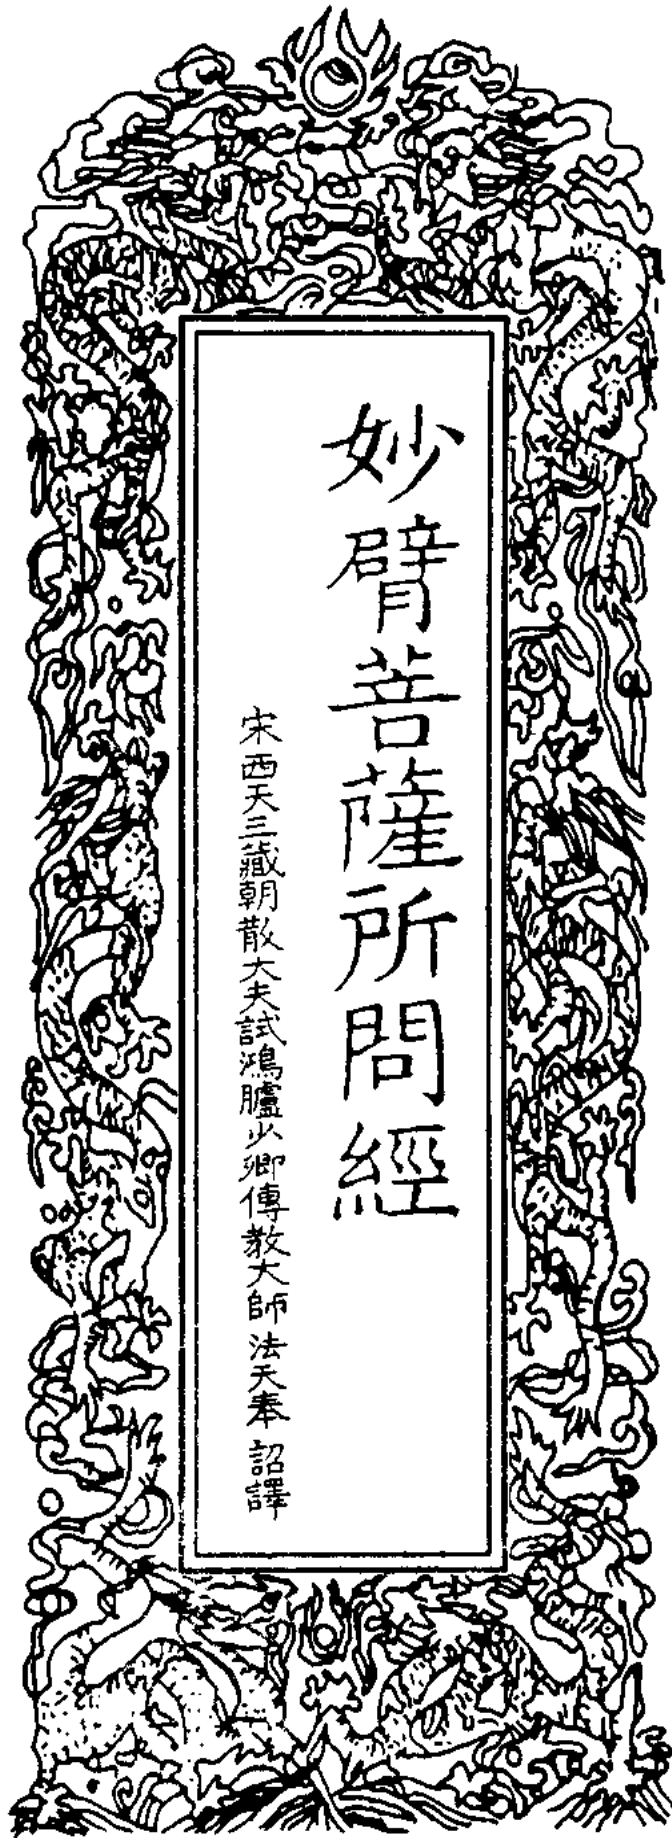 妙臂菩薩所問經
宋西天三藏朝散大夫試鴻臚少卿傳教大師法天奉 詔譯